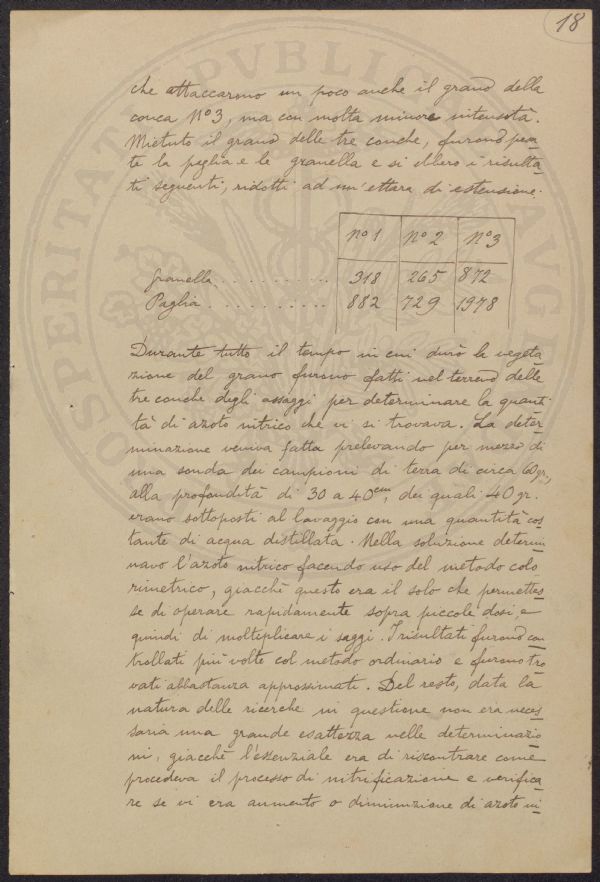 18
che attaccarono un poco anche il grano della
conca Nº3, ma con molta minore intensità.
Mietuto il grano delle tre conche, furono pesa
te la paglia e le granella e si ebbero i risulta
ti seguenti, ridotti ad un'ettera di estensione.
Nº1 Nº2 Nº3
Granella . . . . . . . . . . . 318 265 872
Paglia . . . . . . . . . . . 882 729 1978
Durante tutto il tempo in cui durò la vegeta
zione del grano furono fatti nel terreno delle
tre conche degli assaggi per determinare la quanti
tà di azoto nitrico che vi si trovava. La deter
minazione veniva fatta prelevando per mezzo di
una sonda dei campioni di terra di circa 60 gr.,
alla profondità di 30 a 40cm, dei quali 40 gr.
erano sottoposti al lavaggio con una quantità cos
tante di acqua distillata. Nella soluzione determi
navo l'azoto nitrico facendo uso del metodo colo
rimetrico, giacchè questo era il solo che permettes
se di operare rapidamente sopra piccole dosi, e
quindi di moltiplicare i saggi. I risultati furono con
trollati più volte col metodo ordinario e furono tro
vati abbastanza approssimati. Del resto, data la
natura delle ricerche in questione non era neces
saria una grande esattezza nelle determinazio
ni, giacchè l'essenziale era di riscontrare come
procedeva il processo di nitrificazione e verifica
re se vi era aumento o diminuzione di azoto ni